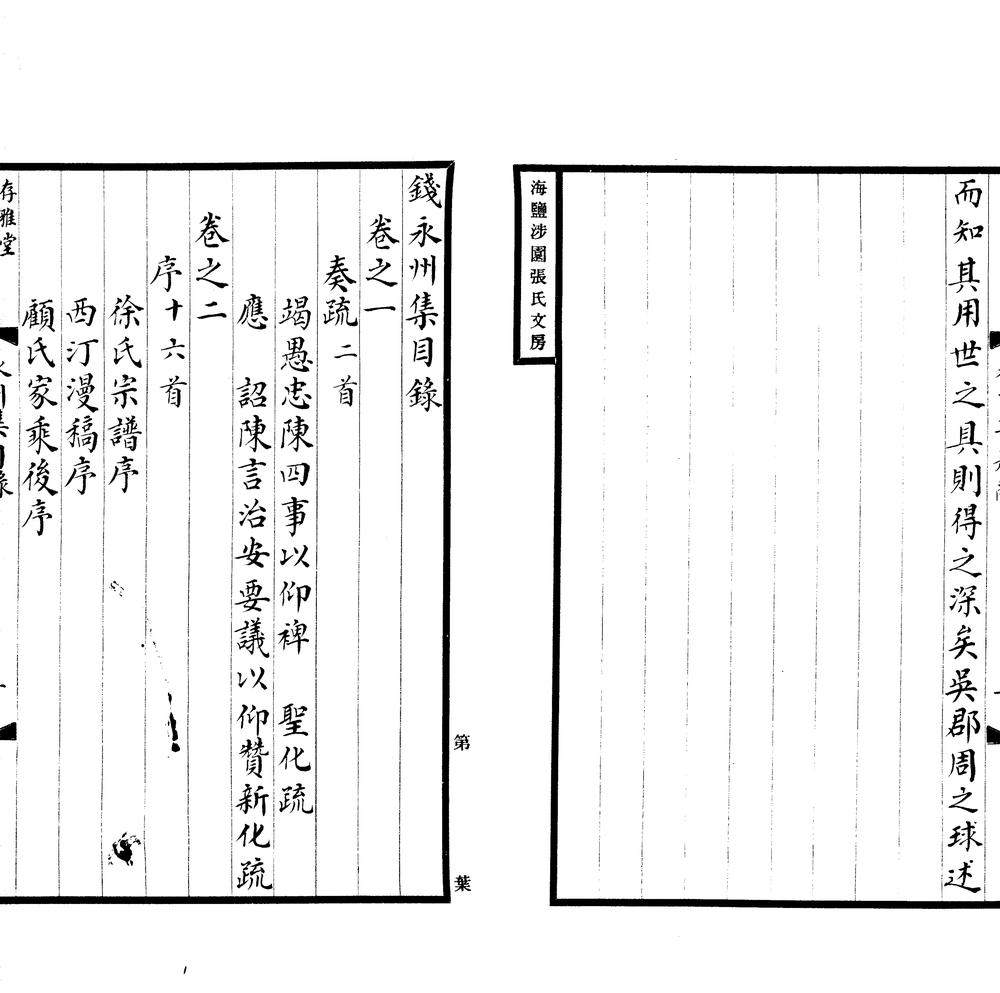 而知其用世之具則得之深矣吳郡周之球述
海鹽涉園張氏文房
錢永州集目錄
卷之一
奏疏二首
竭愚忠陳四事以仰裨　聖化疏
應　詔陳言治安要議以仰贊新化疏
卷之二
序十六首
徐氏宗譜序
西汀漫稿序
顧氏家乘後序
存雅堂
第　葉